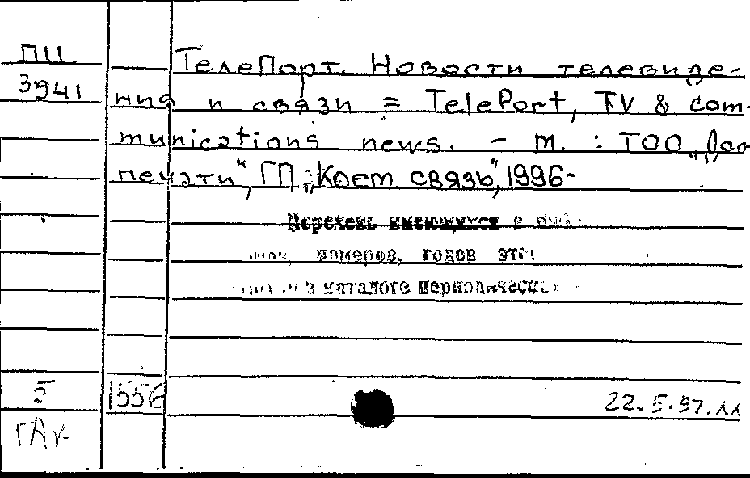 ПЦ
3941
ТелеПорт. Новости телевиде-
ния и связи = TelePort, TV & com-
munications news. – М. : ТОО
печати", ГП "Косм связь", 1996-
Перечень имеющихся в
номеров, годов
в каталоге
5 1556
22.5.97.